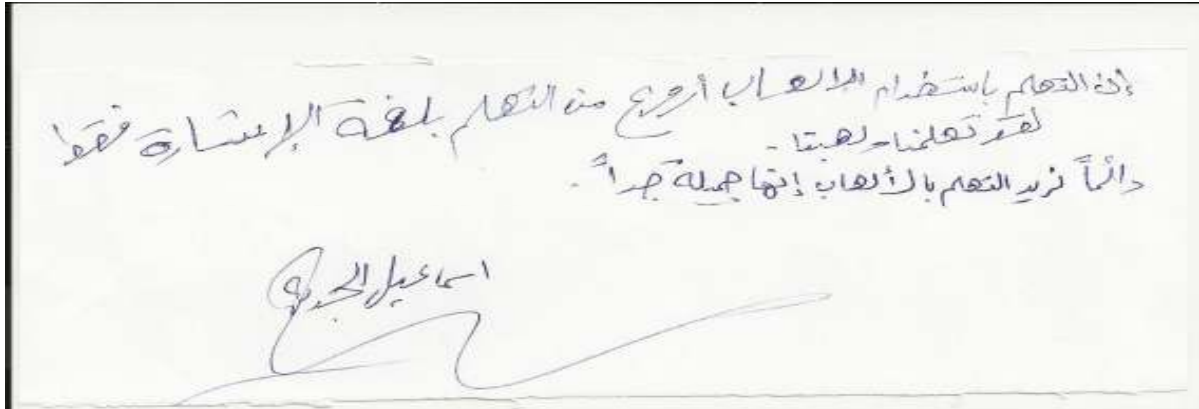 إن التعلم باستخدام الالعاب أروع من التعلم بلغة الإشارة فقط
لقد تعلمنا ولعبنا.
دائماً نريد التعلم بالألعاب إنها جميلة جداً.
اسماعيل